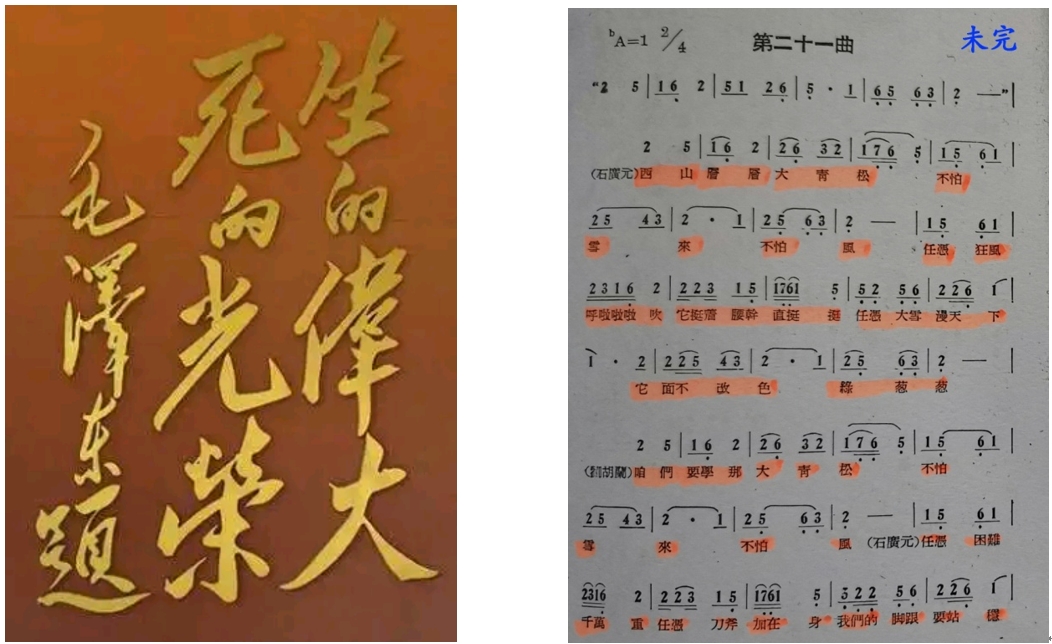 生的偉大
死的光榮
毛澤東題
ᵇA=1 2/4 第二十一曲 未完
(石廣元)西山層層大青松 不怕
雪來不怕風 任憑狂風
呼啦啦啦吹 它挺着腰幹直挺挺 任憑大雪漫天下
它面不改色 綠葱葱
(劉胡蘭)咱們要學那大青松 不怕
雪來 不怕風 (石廣元)任憑困難
千萬重 任憑刀斧加在身 我們的脚跟要站穩